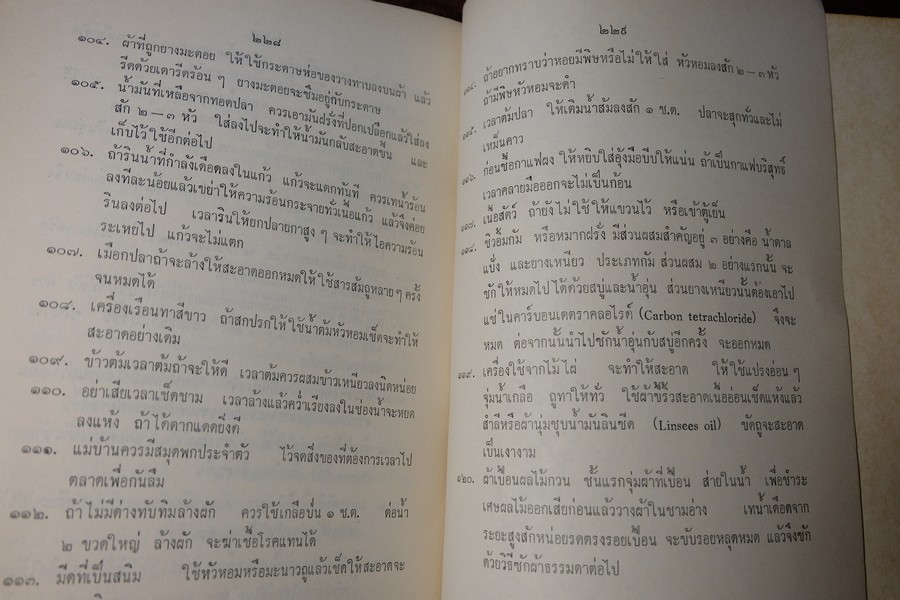 ๒๒๘
๑๐๔. ผ้าที่ถูกยางมะตอย ให้ใช้กระดาษห่อของวางทาบลงบนผ้า แล้ว
รีดด้วยเตารีดร้อน ๆ ยางมะตอยจะซึมอยู่กับกระดาษ
๑๐๕. น้ำมันที่เหลือจากทอดปลา ควรเอามันฝรั่งที่ปอกเปลือกแล้วใส่ลง
สัก ๒ — ๓ หัว ใส่ลงไปจะทำให้น้ำมันกลับสะอาดขึ้น และ
เก็บไว้ใช้อีกต่อไป
๑๐๖. ถ้ารินน้ำที่กำลังเดือดลงในแก้ว แก้วจะแตกทันที ควรเทน้ำร้อน
ลงทีละน้อยแล้วเขย่าให้ความร้อนกระจายทั่วเนื้อแก้ว แล้วจึงค่อย
รินลงต่อไป เวลารินให้ยกปลายกาสูง ๆ จะทำให้ไอความร้อน
ระเหยไป แก้วจะไม่แตก
๑๐๗. เมือกปลาถ้าจะล้างให้สะอาดออกหมดให้ใช้สารส้มถูหลายๆ ครั้ง
จนหมดได้
๑๐๘. เครื่องเรือนทาสีขาว ถ้าสกปรกให้ใช้น้ำต้มหัวหอมเช็ดจะทำให้
สะอาดอย่างเดิม
๑๐๙. ข้าวต้มเวลาต้มถ้าจะให้ดี เวลาต้มควรผสมข้าวเหนียวลงนิดหน่อย
๑๑๐. อย่าเสียเวลาเช็ดชาม เวลาล้างแล้วคว่ำเรียงลงในช่องน้ำจะหยด
ลงแห้ง ถ้าได้ตากแดดยิ่งดี
๑๑๑. แม่บ้านควรมีสมุดพกประจำตัว ไว้จดสิ่งของที่ต้องการเวลาไป
ตลาดเพื่อกันลืม
๑๑๒. ถ้าไม่มีด่างทับทิมล้างผัก ควรใช้เกลือป่น ๑ ช.ต. ต่อน้ำ
๒ ขวดใหญ่ ล้างผัก จะฆ่าเชื้อโรคแทนได้
๑๑๓. มีดที่เป็นสนิม ใช้หัวหอมหรือมะนาวถูแล้วเช็ดให้สะอาดจะ
๒๒๙
๑๑๔. ถ้าอยากทราบว่าหอยมีพิษหรือไม่ให้ใส่ หัวหอมลงสัก ๒ — ๓ หัว
ถ้ามีพิษหัวหอมจะดำ
๑๑๕. เวลาต้มปลา ให้เติมน้ำส้มลงสัก ๑ ช.ต. ปลาจะสุกทั่วและไม่
เหม็นคาว
๑๑๖. ก่อนซื้อกาแฟผง ให้หยิบใส่อุ้งมือบีบให้แน่น ถ้าเป็นกาแฟบริสุทธิ์
เวลาคลายมือออกจะไม่เป็นก้อน
๑๑๗. เนื้อสัตว์ ถ้ายังไม่ใช้ให้แขวนไว้ หรือเข้าตู้เย็น
๑๑๘. ชิวอิ้มกัม หรือหมากฝรั่ง มีส่วนผสมสำคัญอยู่ ๓ อย่างคือ น้ำตาล
แป้ง และยางเหนียว ประเภทกัม ส่วนผสม ๒ อย่างแรกนั้น จะ
ซักให้หมดไปได้ด้วยสบู่และน้ำอุ่น ส่วนยางเหนียวนั้นต้องเอาไป
แช่ในคาร์บอนเตตราคลอไรด์ (Carbon tetrachloride) จึงจะ
หมด ต่อจากนั้นนำไปซักน้ำอุ่นกับสบู่อีกครั้ง จะออกหมด
๑๑๙. เครื่องใช้จากไม้ไผ่ จะทำให้สะอาด ให้ใช้แปรงอ่อน ๆ
จุ่มน้ำเกลือ ถูทาให้ทั่ว ใช้ผ้าขี้ริ้วสะอาดเนื้ออ่อนเช็ดแห้งแล้ว
สำลีหรือผ้านุ่มชุบน้ำมันลินซีด (Linsees oil) ขัดถูจะสะอาด
เป็นเงางาม
๑๒๐. ผ้าเปื้อนผลไม้กวน ขั้นแรกจุ่มผ้าที่เปื้อน ส่ายในน้ำ เพื่อชำระ
เศษผลไม้ออกเสียก่อนแล้ววางผ้าในชามอ่าง เทน้ำเดือดจาก
ระยะสูงสักหน่อยรดตรงรอยเปื้อน จะขับรอยหลุดหมด แล้วจึงซัก
ด้วยวิธีซักผ้าธรรมดาต่อไป